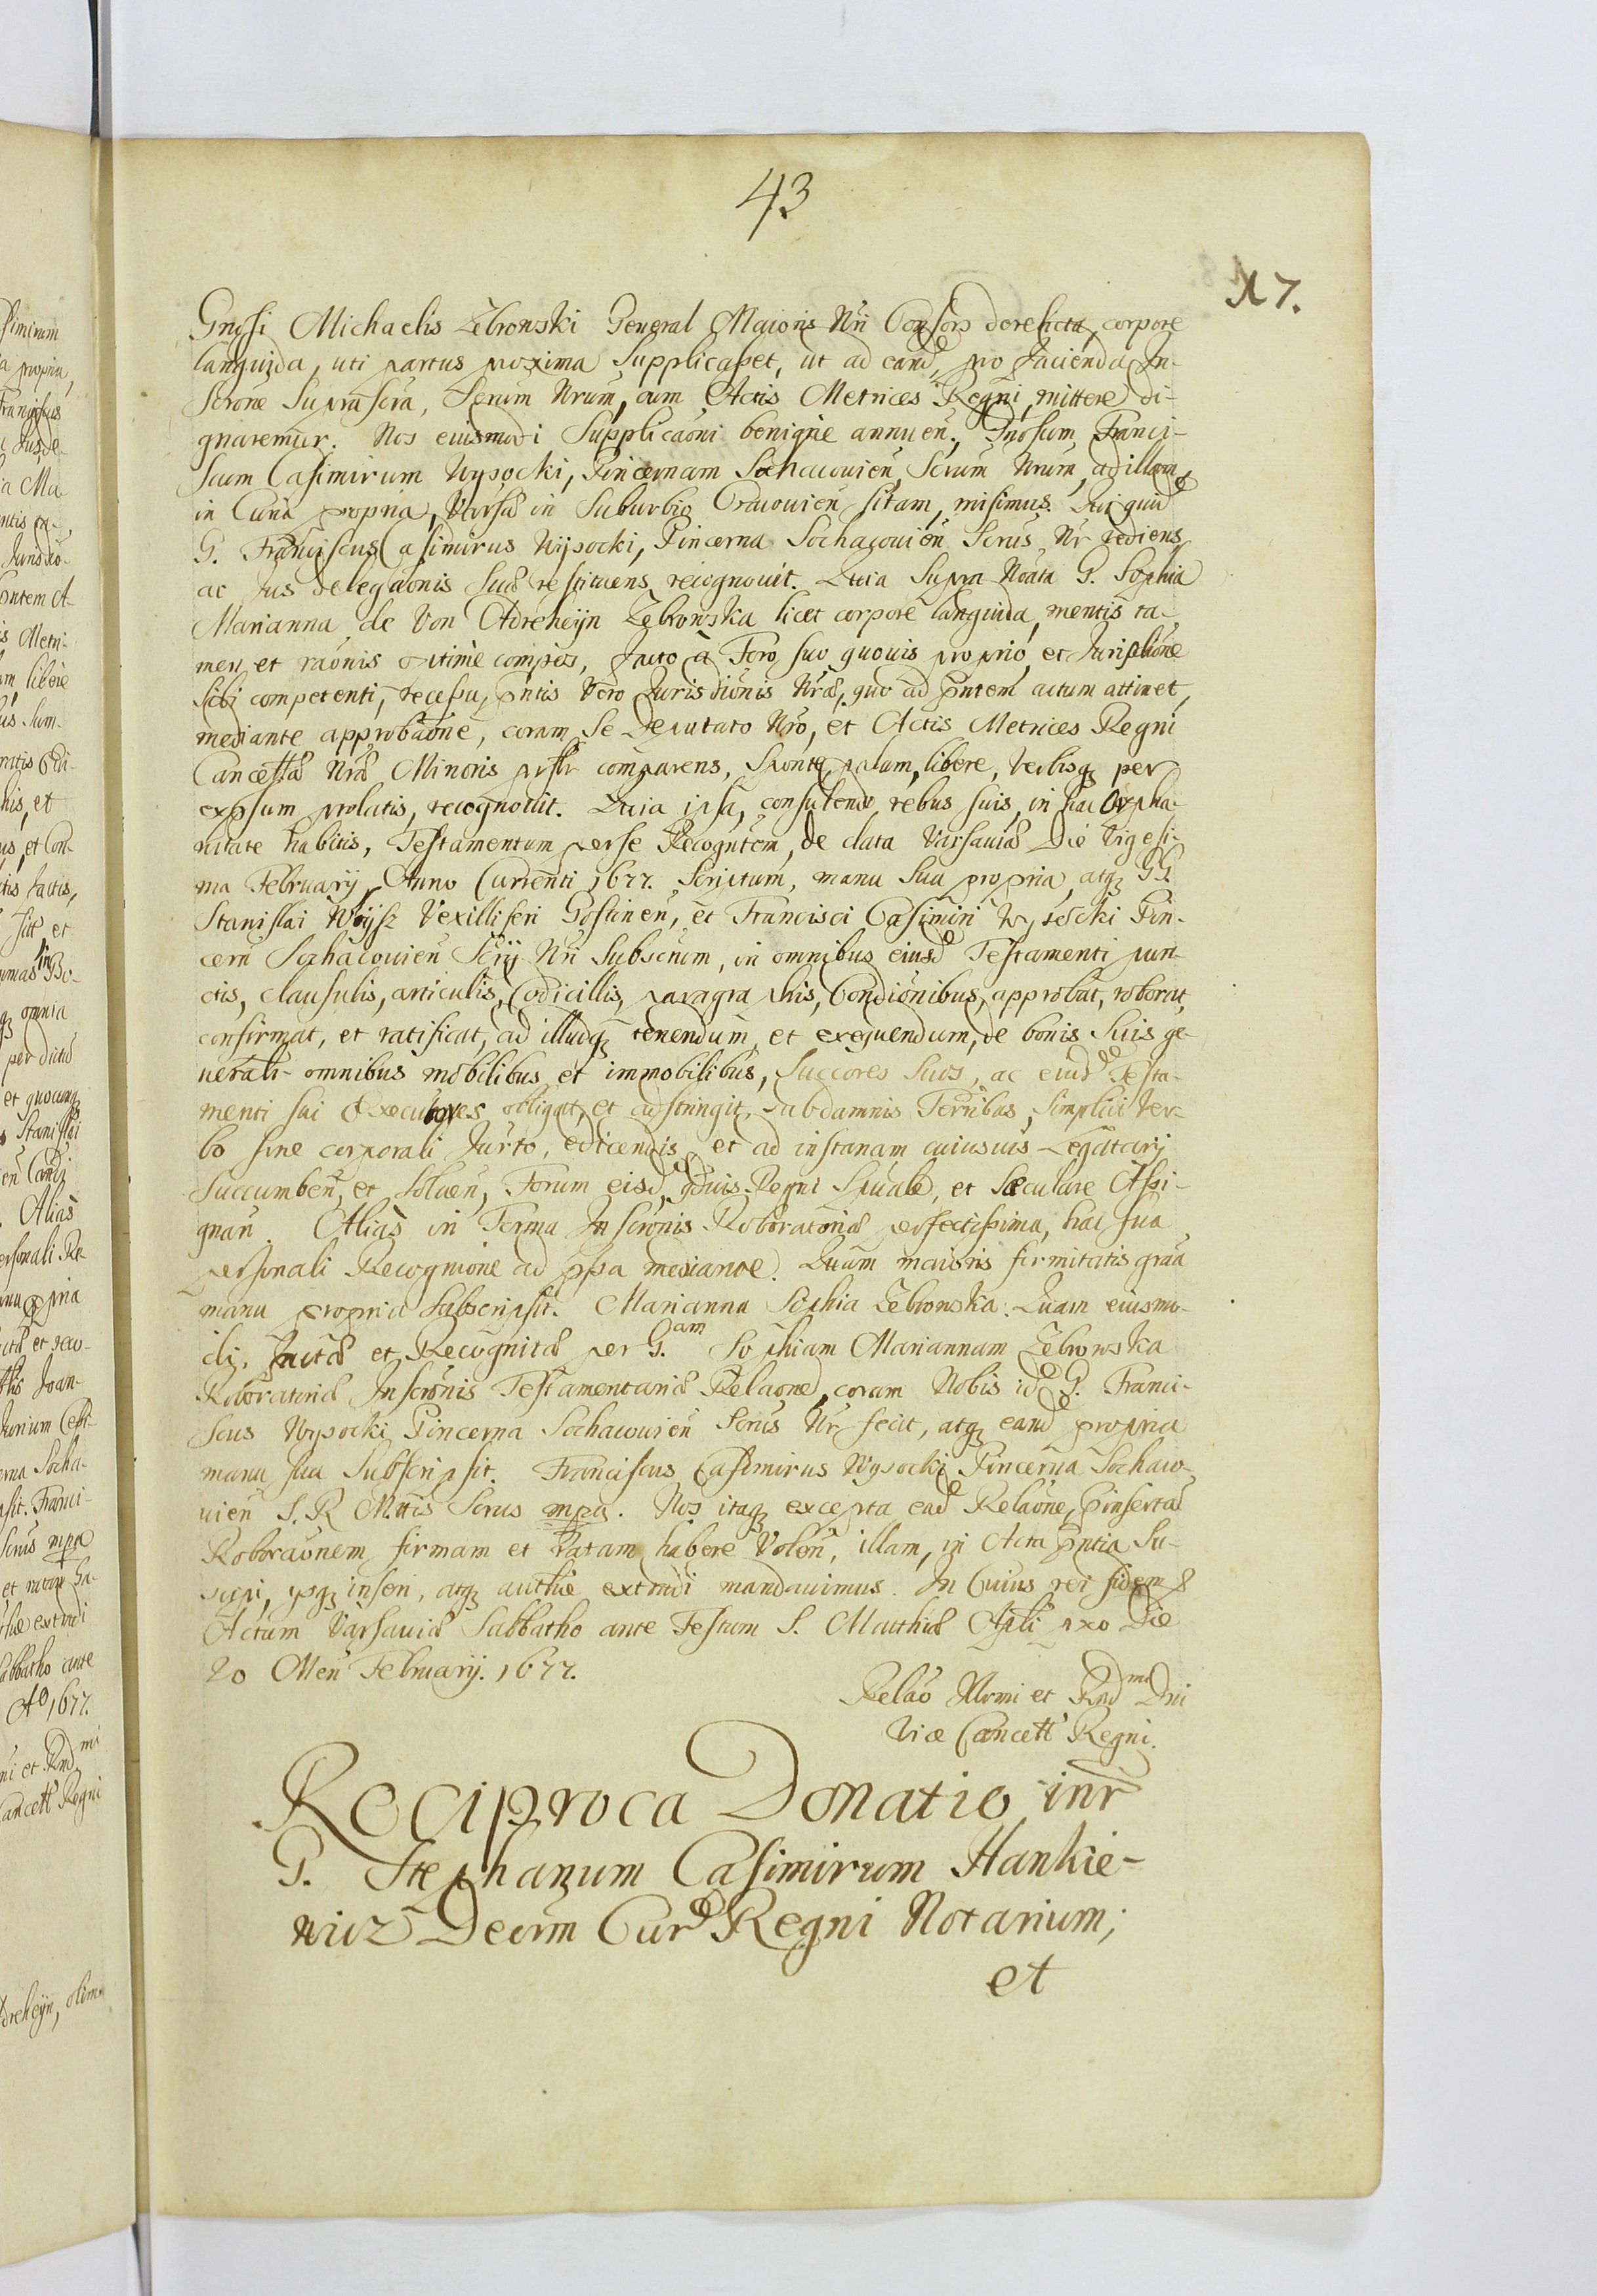 43
X 7.
Gnosi Michaelis Zebrowski General Maioris Nri Consors derelicta, corpore
languida, uti partus proxima Supplicasset, ut ad eand, pro facienda In-
scrõne Suprascra, Scrum Nrum, cum Actis Metrices Regni, mittere di-
gnaremur. Nos eiusmodi Supplicaõni benigne annuen, Gnosum Franci-
scum Casimirum Wysocki, Pincernam Sochacouien, Scrum Nrum, ad illam
in Curia propria, Varsa in Suburbio Cracouien sitam, misimus. Qui quid
G. Franciscus Casimirus Wysocki, Pincerna Sochacouien Scrus Nr rediens
ac Jus delegaõnis Suæ restituens, recognouit. Quia Supra Noata G. Sophia
Marianna de Von Adreheÿn Zebrowska licet corpore languida, mentis ta-
men et raõnis optime compos, facto à Foro suo quouis proprio et Jurisdiõne
sibi competenti, recessu, pntis Vero Jurisdiõnis Nræ, quo ad pntem actum attinet,
mediante approbaõne, coram Se Deputato Nro, et Actis Metrices Regni
Cancellæ Nræ Minoris prslr comparens, Sponte, palam, libere, Verbisq per
expsum prolatis, recognouit. Quia ipsa, consulendo rebus suis, in hac Orpha-
nitate habitis, Testamentum per se Recognitem, de data Varsauiæ Die Vigesi-
ma Februarij Anno Currenti 1677. Scriptum, manu Sua propria, atq GG.
Stanislai Woÿsz Vexilliferi Gostinen, et Francisci Casimiri Wysocki Pin-
cern Sochacouien Scrij Nri Subscrium, in omnibus eiusd Testamenti pun-
ctis, clausulis, articulis, Codicillis, paragraphis, Condiõnibus, approbat, roborat,
confirmat, et ratificat, ad illudq tenendum, et exequendum, de bonis Suis ge-
neralr omnibus mobilibus et immobilibus, Succores Suos, ac eiusd Testa-
menti sui Executores obligat, et adstringit, sub damnis Terribus, Simplici Ver-
bo sine corporali Jurto, edicendis, et ad instanam cuiusuis Legatarij
Succumben, et Soluen, Forum eisd, quduis Regni Spuale, et Sæculare Assi-
gnan. Alias in Forma Inscrõnis Roboratoriæ perfectissima, hac sua
personali Recogniõne ad pssa mediante. Quam maioris firmitatis graa
manu propria Subscripsit. Marianna Sophia Zebrowska. Quam eiusmo-
di, factæ et Recognitæ per G.am Sophiam Mariannam Zebrowska
Roboratoriæ Inscrõnis Testamentariæ Relaõne, coram Nobis id G. Franci-
scus Wysocki Pincerna Sochacouien Scrus Nr fecit, atq eand propria
manu sua Subscripsit. Franciscus Casimirus Wysocki Pincerna Sochaco-
uien S. R. M.ttis Scrus mpa. Nos itaq excepta ead Relaõne, Pinsertæ
Roboraõnem firmam et Ratam habere Volen, illam, in Acta pntia Su-
scipi, ipsq inseri, atq authe extradi mandauimus. In Cuius rei fidem &
Actum Varsauiæ Sabbatho ante Festum S. Matthiæ Apli pxo Die
20 Men Februarij. 1677.
Relaõ Illrmi et Rnd mi Dni
Vice Cancell Regni.
Reciproca Donatio inr
G. Stephanum Casimirum Hankie-
wicz Decrm Curæ Regni Notarium;
et